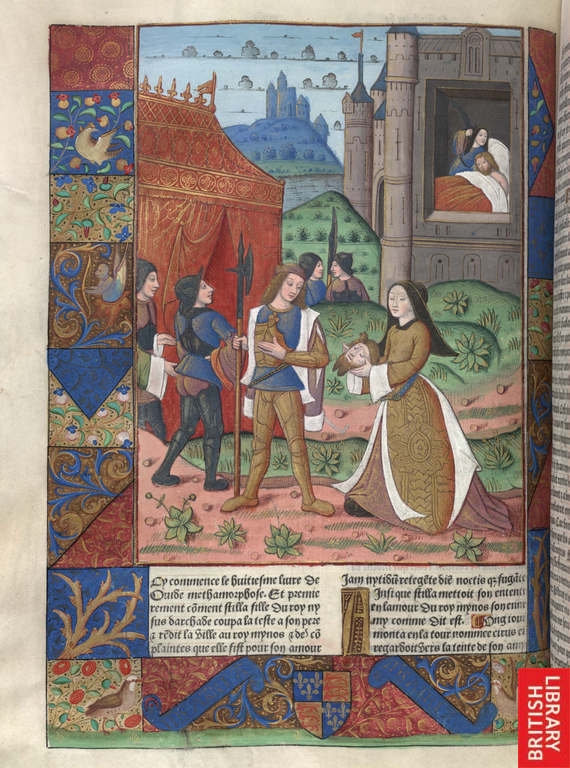 Cy commence le huitiesme livre de
Ovide methamorphose. Et premie
rement cõment stilla fille du roy ny
sus darchade coupa la teste a son pere
⁊ rẽdit la ville au roy mynos ⁊ de cõ
plaintes que elle fist pour son amour
Jam nytidũ retegẽte diẽ noctis q̃ fugãte
Insi que stilla mettoit son entent
en lamour du roy mynos son enne
my comme dit est.
monta en la tour nommee cirus et
regardoit vers la tente de son amy
BRITISH
LIBRARY